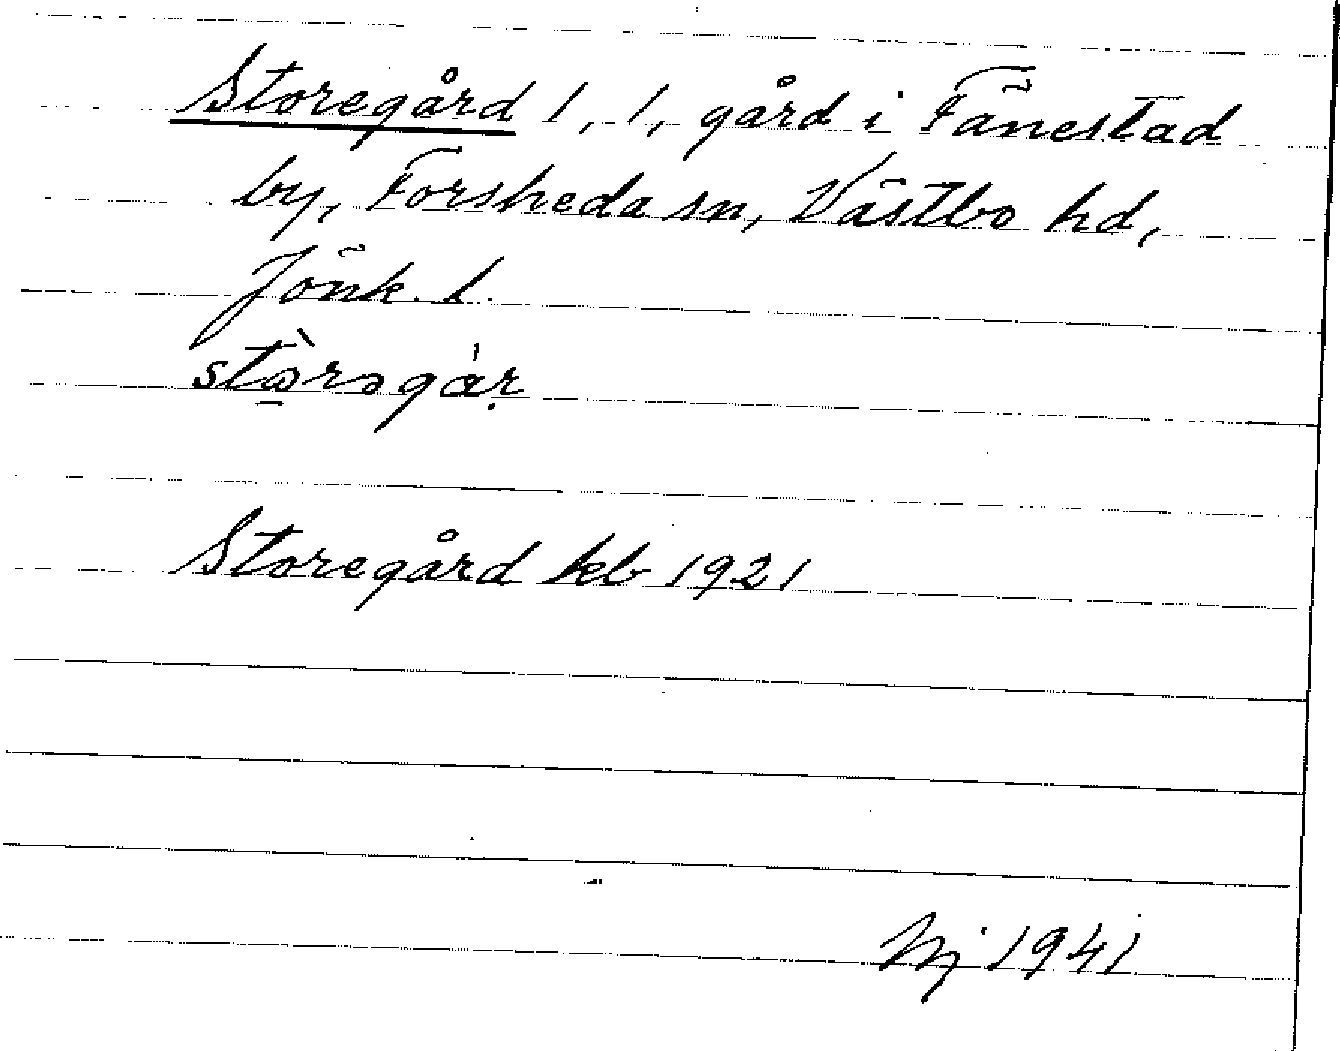 Storegård 1, 1, gård i Fänestad
by, Forsheda sn, Västbo hd,
Jönk. l.
Storegård kb 1921
1941